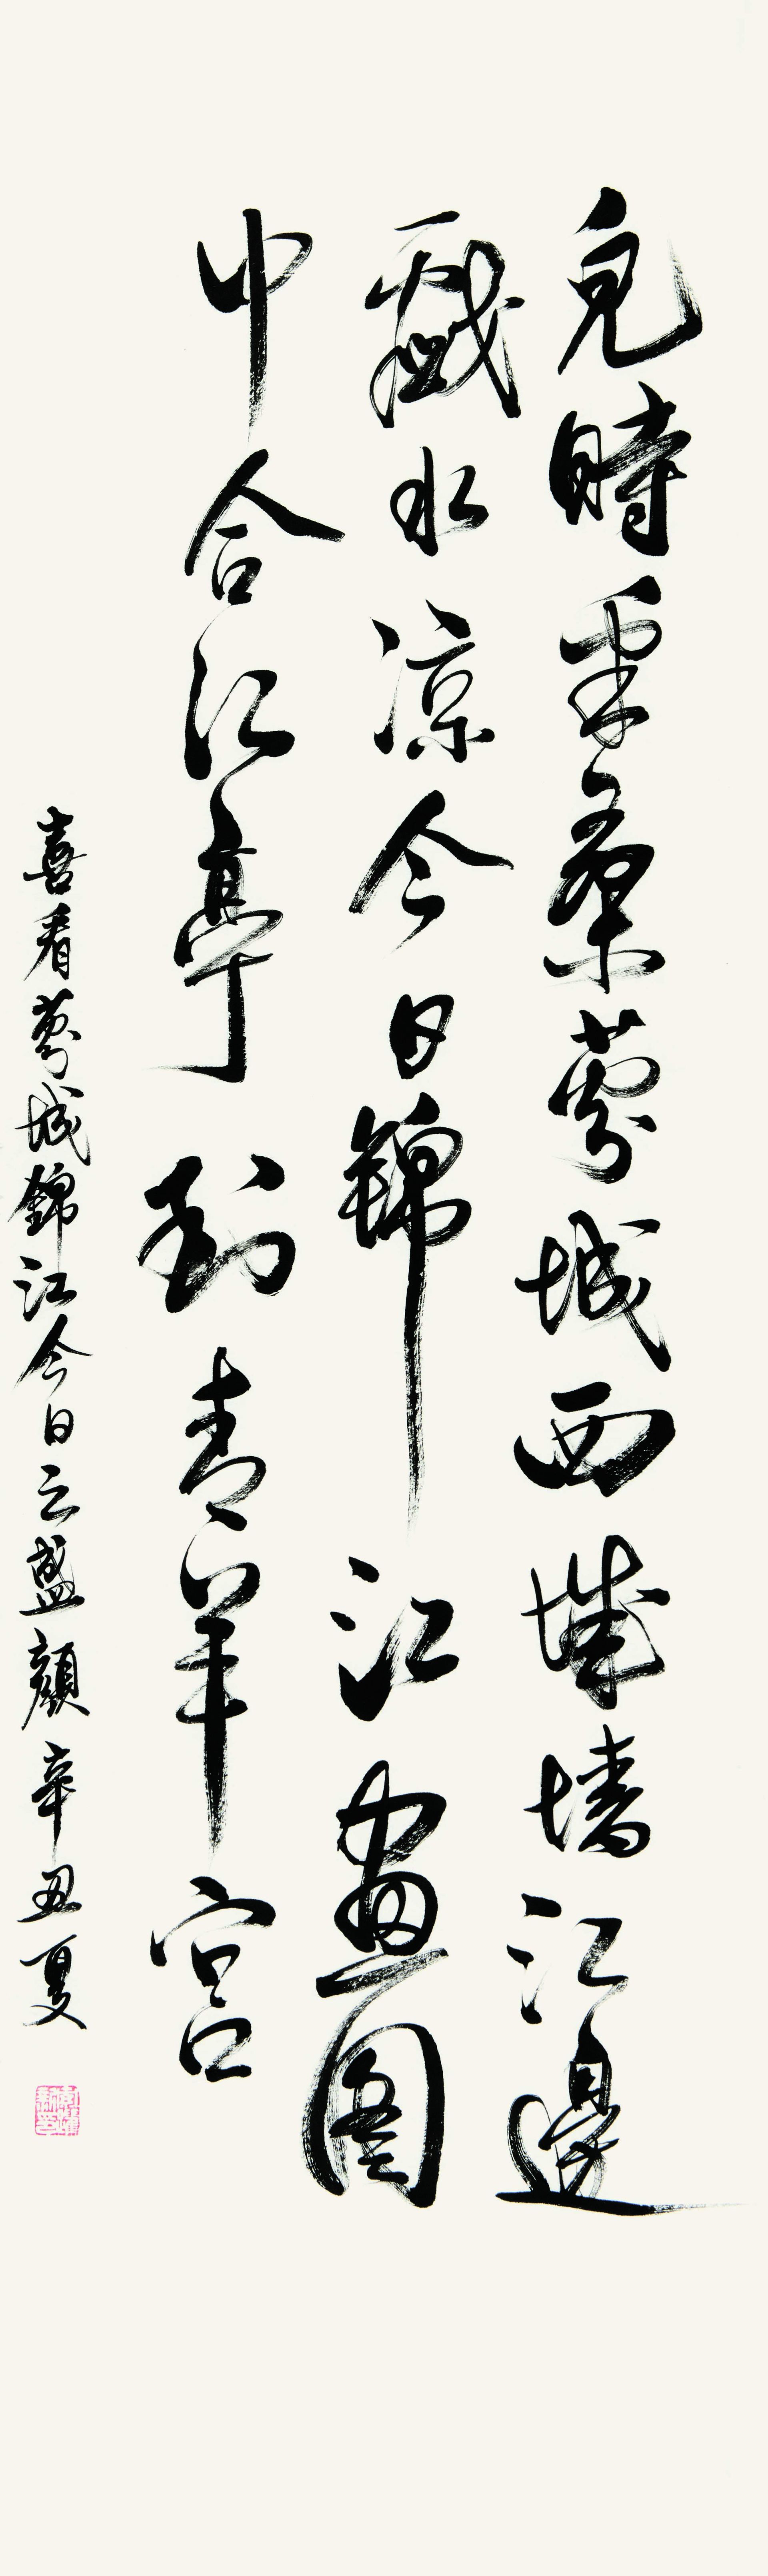 兒時采桑蓉城西城墙江邊
戲水凉今日錦江畫图
中合江亭到青羊宫
喜看蓉城錦江今日之盛顔辛丑夏